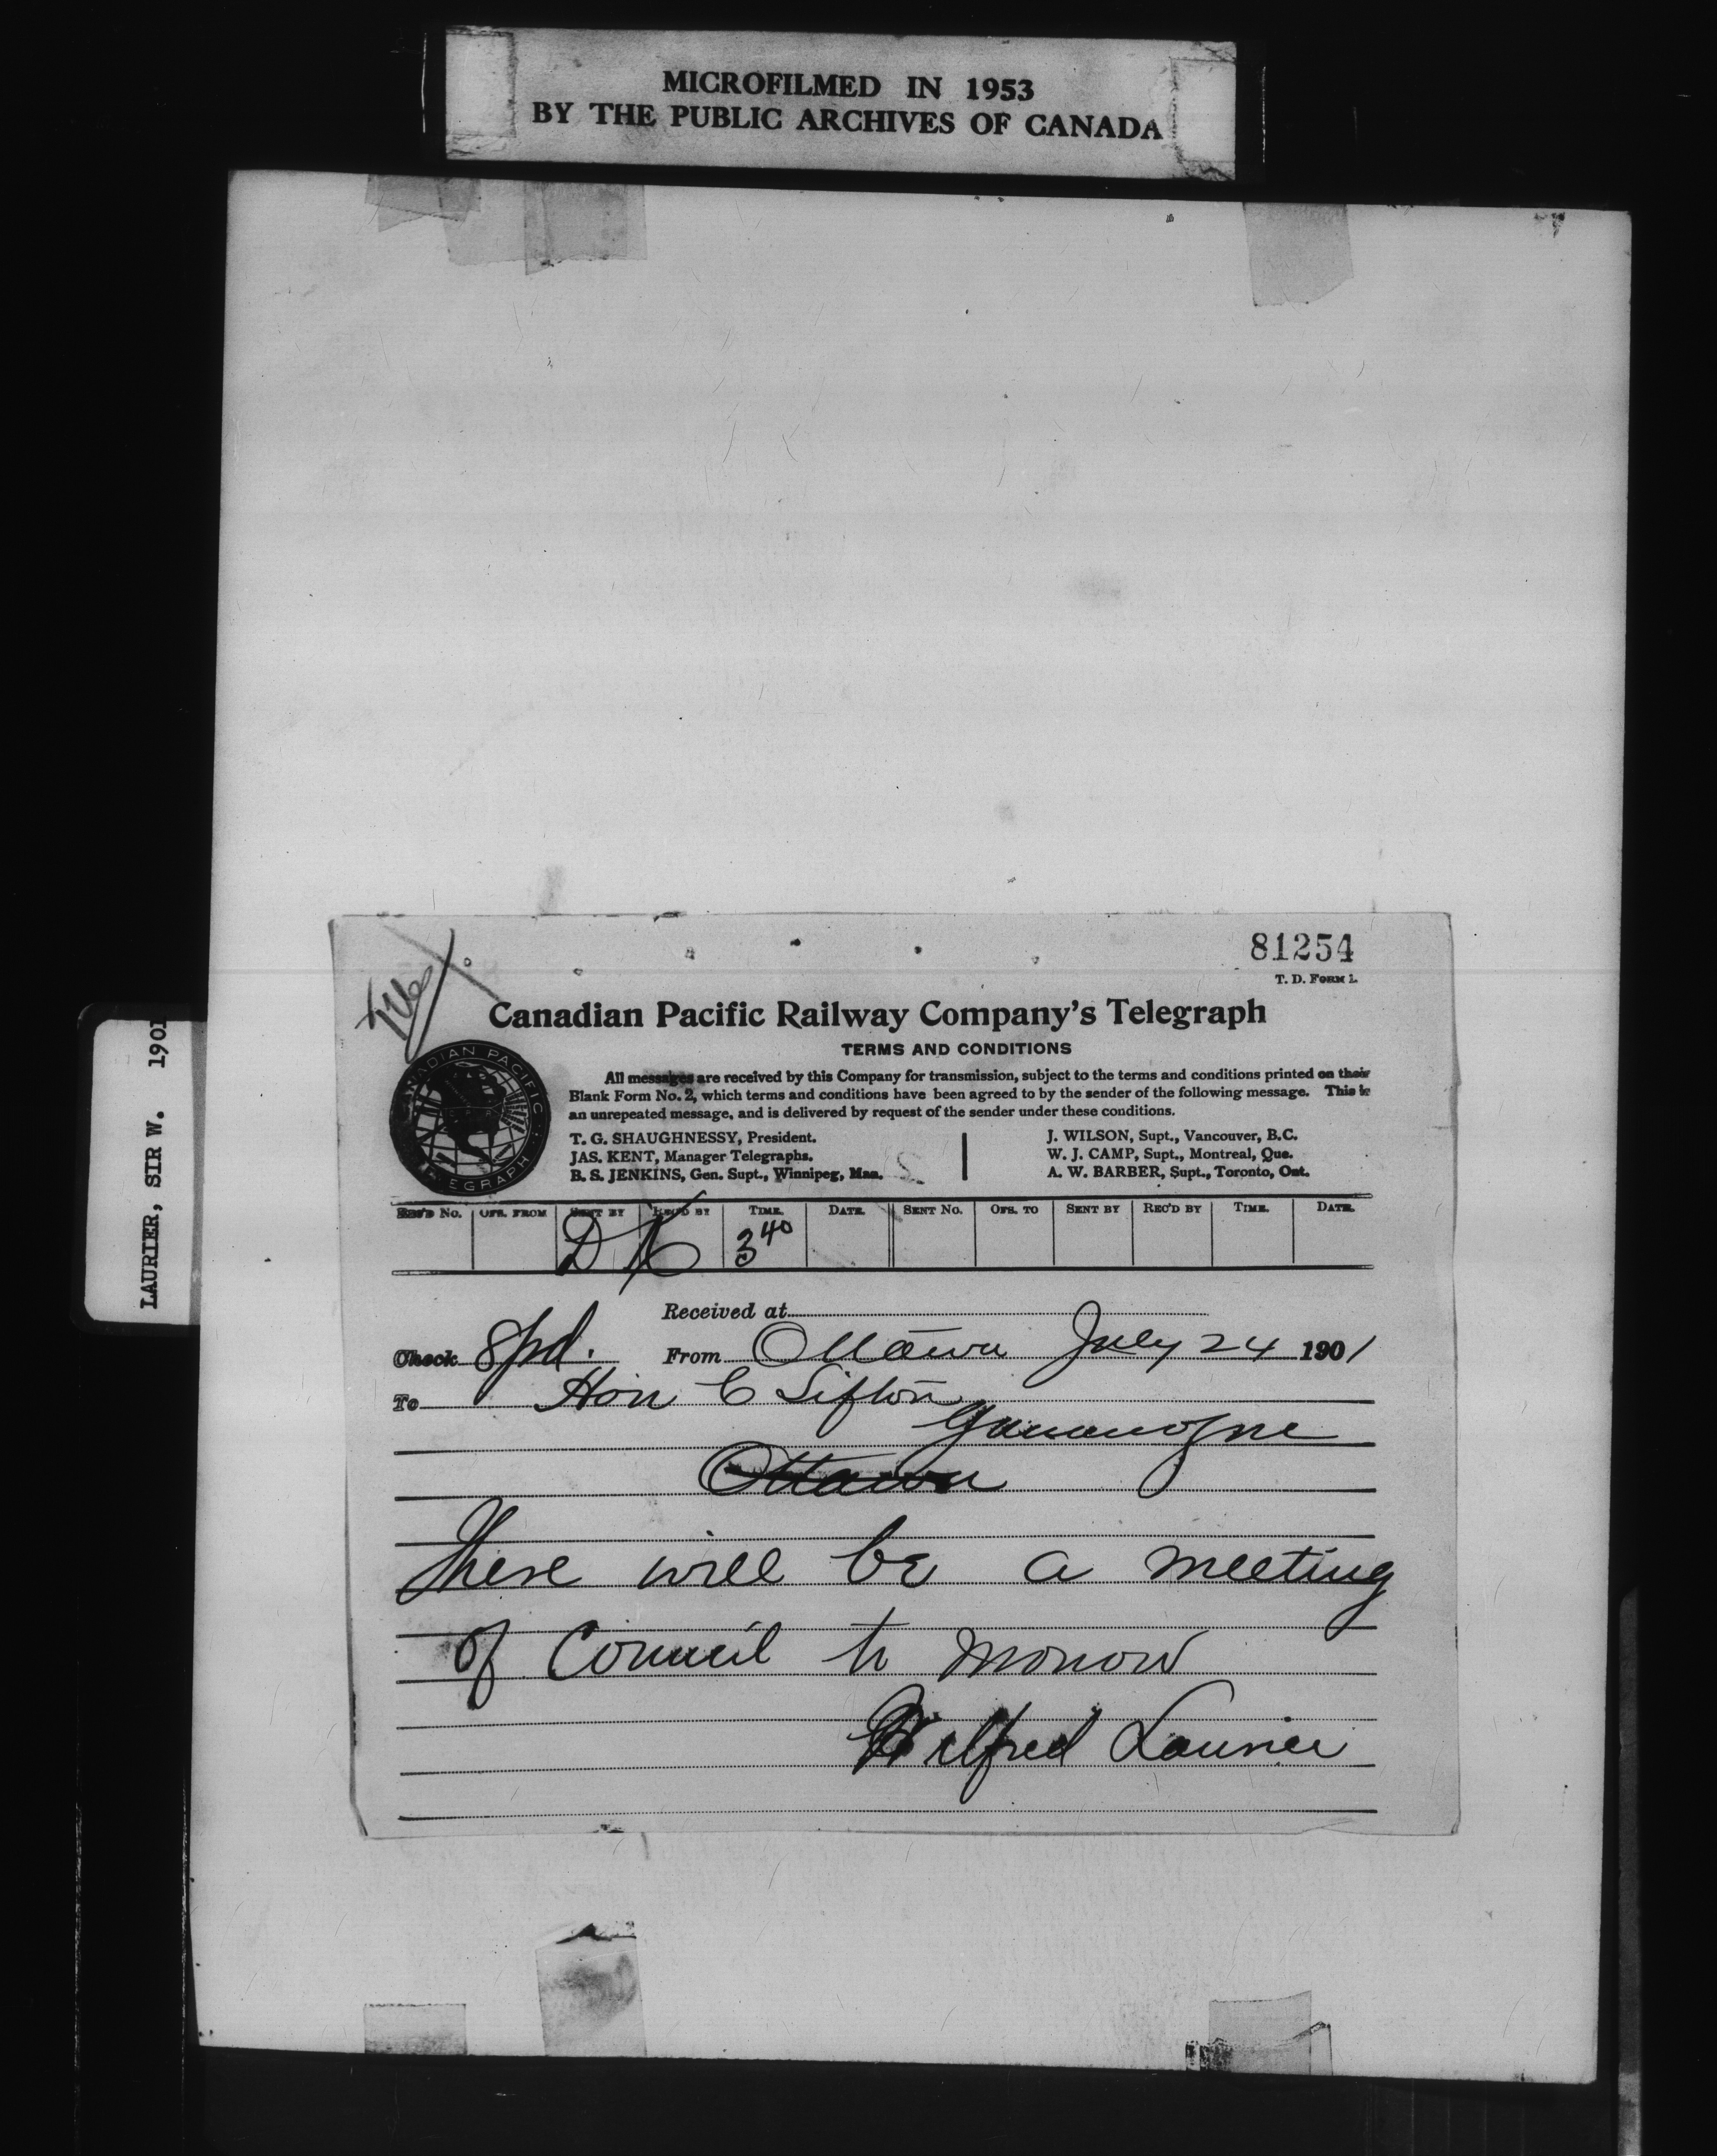 MICROFILMED IN 1953
BY THE PUBLIC ARCHIVES OF CANADA
LAURIER, SIR W. 1901
81254
T. D. FORM 1.
File
Canadian Pacific Railway Company's Telegraph
TERMS AND CONDITIONS
CANADIAN PACIFIC
TELEGRAPH
All messages are received by this Company for transmission, subject to the terms and conditions printed on their
Blank Form No. 2, which terms and conditions have been agreed to by the sender of the following message. This is
an unrepeated message, and is delivered by request of the sender under these conditions.
T. G. SHAUGHNESSY, President.
JAS. KENT, Manager Telegraphs.
B. S. JENKINS, Gen. Supt., Winnipeg, Man.
J. WILSON, Supt., Vancouver, B.C.
W. J. CAMP, Supt., Montreal, Que.
A. W. BARBER, Supt., Toronto, Ont.
REC'D No. OFS. FROM SENT BY REC'D BY TIME. DATE. SENT No. OFS. TO SENT BY REC'D BY TIME. DATE.
D 3 40
Received at
Check 8 pd. From Ottawa July 24 1901
To Hon C Sifton
Gananoque
Ottawa
There will be a meeting
of Council to morrow
Wilfred Laurier